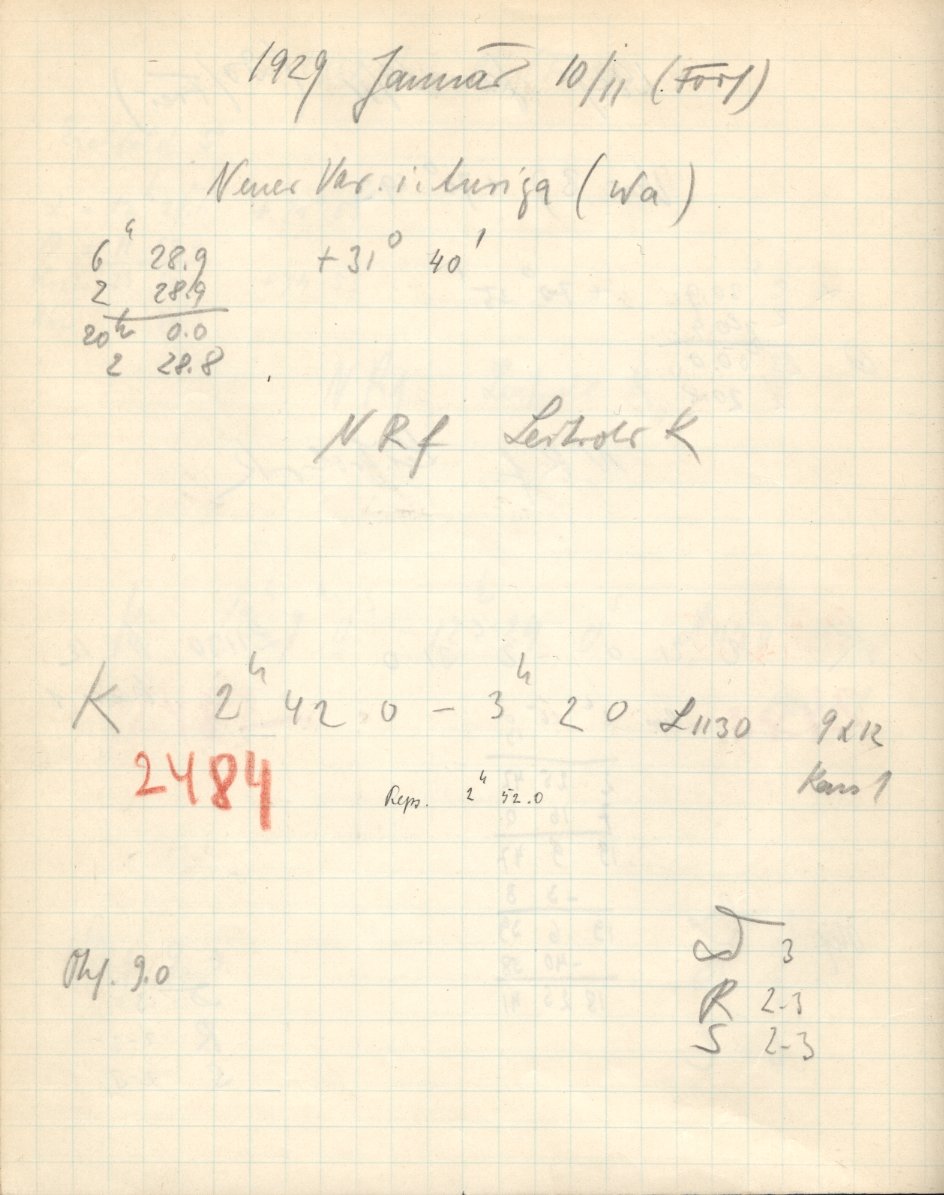 1929 Januar 10/11 (Forts)
Neuer Var. i. Auriga (Wa)
6ʰ 28.9 +31⁰ 40'
2 28.9
20ʰ 0.0
2 28.8
N R f K
K 2ʰ 42 0 – 3ʰ 20 L1130 9x12
2484 Reps. 2ʰ 52.0
3
9.0 R 2-3
S 2-3